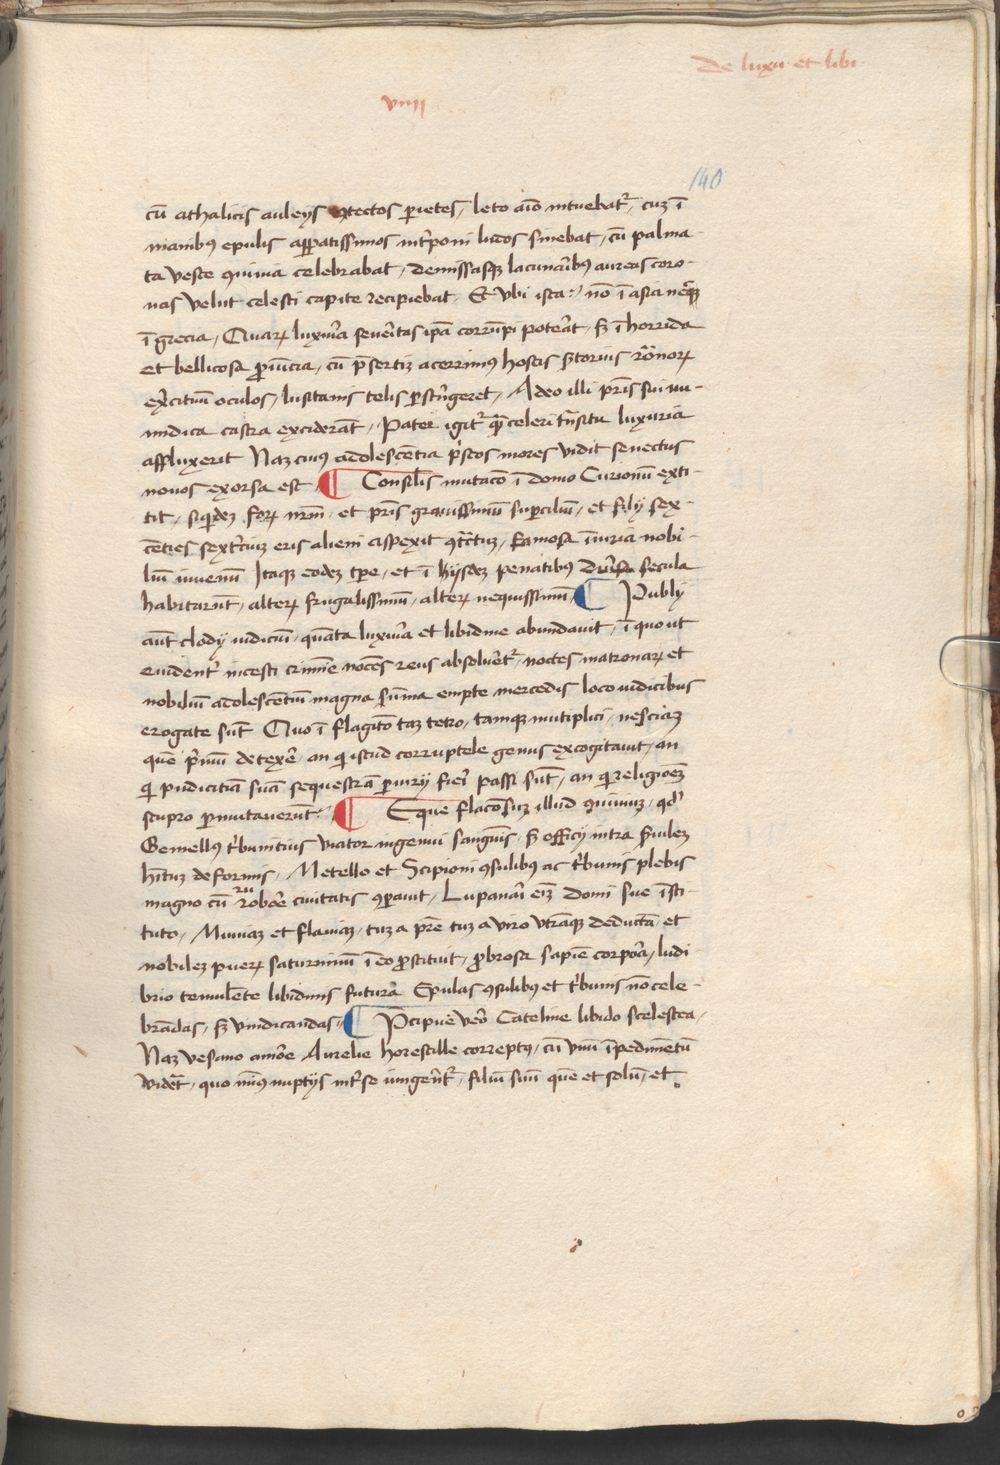 De luxu et libi
viiii
140
cū athalicis auleys ꝯtectos parietes, leto aīo intuebatᷣ, cuz ī
manibꝰ epulis asꝑatissimos intᷣponi ludos sinebat, cū palma-
ta veste ꝯuiuia celebrabat, demissasqꝫ lacunaribꝰ aureas coro-
nas velut celesti capite recipiebat. Et vbi ista? nō ī asia neqꝫ
ī grecia, Quaꝝ luxuria seueritas ip̄a corrūpi poterat, sꝫ ī horrida
et bellicosa ꝓuīcia, cū p̄sertiz acerrimꝰ hostis s̄torius rōnoꝝ
exercituū oculos, lusitanis telis ꝑstringeret, Adeo illi pr̄is sui nu-
midica castra exciderāt, Patet igitᷣ qͣ celeri trāsitu luxuria
affluxerit Naz cuiꝰ adolescētia priscos mores vidit senectus
nouos exorsa est. ¶ Consilis mutacō ī domo Curionū exti-
tit, siqͥdez foꝝ nr̄m, et pr̄is grauissimū suꝑciliū, et filij sex-
cēties sextᷣciuz eris alieni aspexit ꝯtr̄ctuz, famosa īiuria nobi-
liū iuuenū Itaqꝫ eodez tꝑe, et ī hijsdez penatibus diuersa secula
habitarūt, alteꝝ frugalissimū, alteꝝ nequissimū. ¶ Publij
aūt clodij iudiciū, quāta luxuria et libidine abundauit, ī quo ut
euidentᷣ incesti crimīe nocēs reus absolueretᷣ, noctes matronaꝝ et
nobiliū adolescētiū magna sūma empte mercedis loco iudicibus
erogate sūt Quo ī flagitō taz tetro, tamqꝫ mutiplici, nesciaz
quē pͥmū detexē, an qͥ istud corruptele genus excogitauit, an
qͥ pudicitiā suā sequestrā ꝑiurij fieri passi sūt, an qͥ religionē
stupro ꝑmutauerūt. ¶ Eque flacōsuz illud ꝯuiuiuz, qd̓
Gemellꝰ tͥbunitius viator ingenui sanguīs, sꝫ officij intra s̄uilez
hītuz deformis, Metello et Scipioni ꝯsulibus ac tͥbunis plebis
magno cū rubore ciuitatis ꝯꝑauit, Lupanari eīz domi sue īsti-
tuto, Muniaz et flauiaz, tuz a pr̄e tuz a viro vtrāqꝫ deductā et
nobilez pueꝝ saturninū ī eo ꝓstituit, ꝓbrosa sapiē corpora, ludi
brio temulēte libidinis futura Epulas ꝯsulibus et tͥbunis nō cele-
brādas, sꝫ vindicandas. ¶ Pͣcipue vero Cateline libido scelestea,
Naz vesano amore Aurelie horestille correptꝰ, cū vnū īpedimētū
videret, quo minꝰ nuptijs intᷣ se iungerētᷣ, filiū suū quē et solū, et